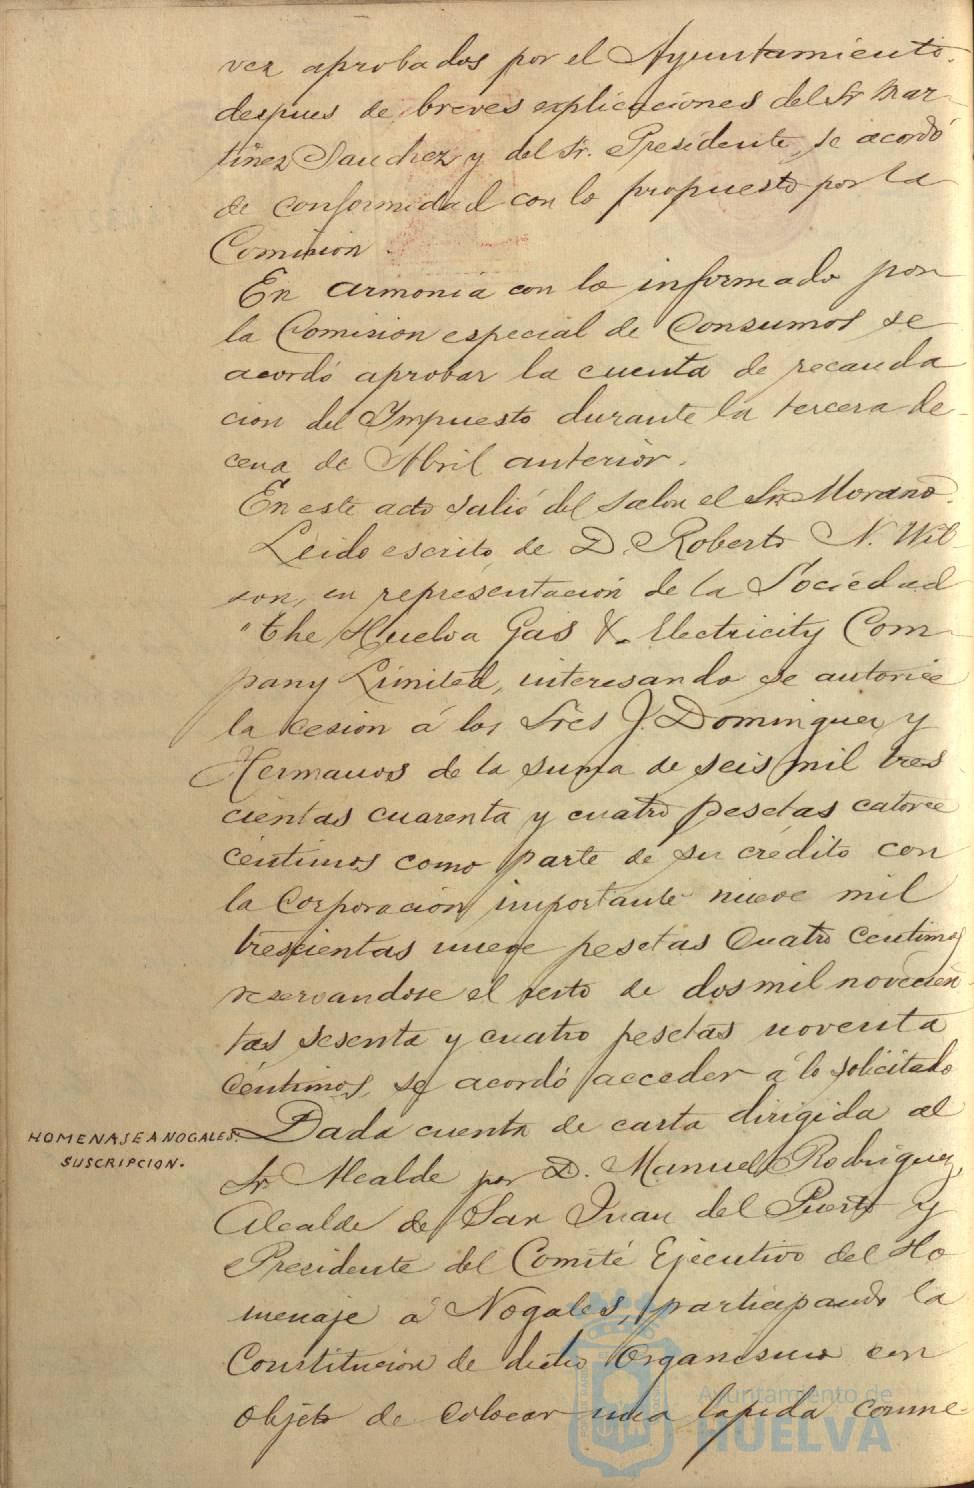 vez aprobados por el Ayuntamiento.
despues de breves explicaciones del Sr Mar-
tinez Sanchez y del Sr. Presidente, se acordó
de conformidad con lo propuesto por la
Comision.
En armonia con lo informado por
la Comision especial de Consumos se
acordó aprobar la cuenta de recauda
cion del Impuesto durante la tercera de-
cena de Abril anterior.
En este acto salió del salon el Sr. Morano.
Leido escrito de D. Roberto N. Wil-
son, en representación de la Sociedad
"the Huelva Gas & Electricity Com-
pany Limited, interesando se autorice
la cesion á los Sres J. Dominguez y
Hermanos de la suma de seis mil tres
cientas cuarenta y cuatro pesetas catorce
centimos como parte de su crédito con
la Corporación importante nueve mil
trescientas nueve pesetas cuatro centimos
reservandose el resto de dos mil novecien-
tas sesenta y cuatro pesetas noventa
céntimos, se acordó acceder á lo solicitado
HOMENAJE A NOGALES.
SUSCRIPCION.
Dada cuenta de carta dirigida al
Sr. Alcalde por D. Manuel Rodriguez,
Alcalde de San Juan del Puerto y
Presidente del Comité Ejecutivo del Ho
menaje á Nogales, participando la
Constitución de dicho Organismo con
objeto de colocar una lapida conme-
Ayuntamiento de
HUELVA